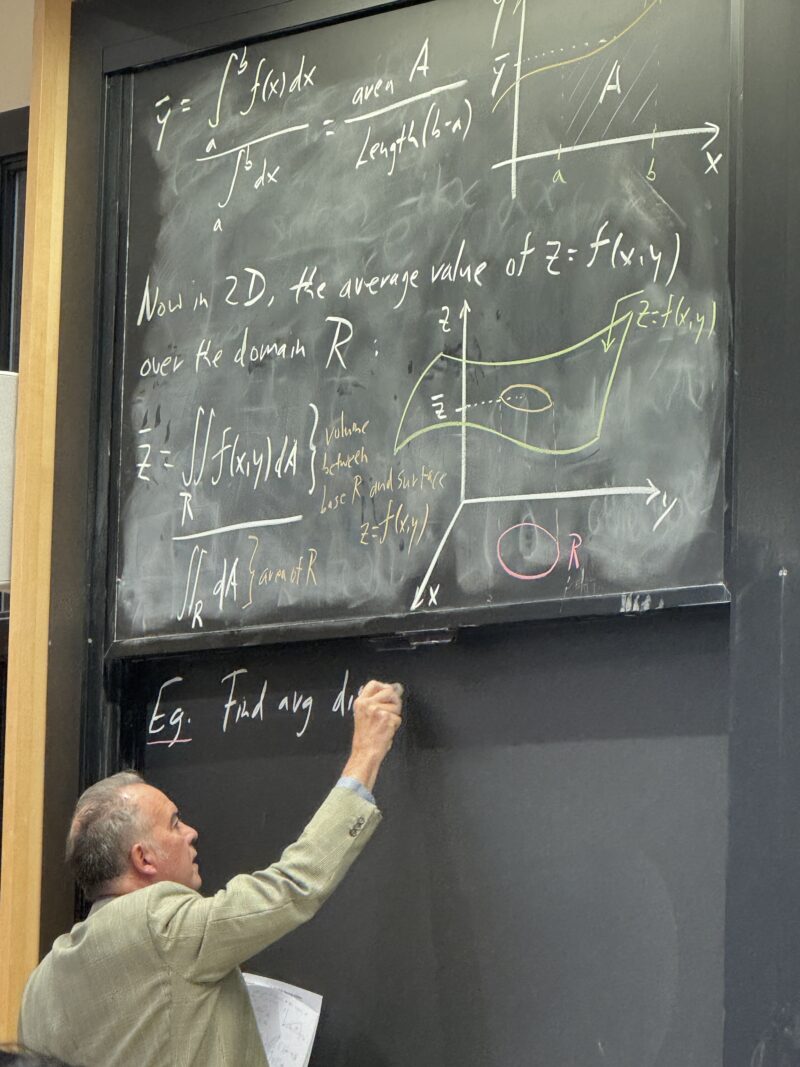 ȳ = ∫ₐᵇ f(x)dx / ∫ₐᵇ dx = area A / Length(b-a)
y
ȳ
A
a
b
x
Now in 2D, the average value of z = f(x,y)
over the domain R :
z
z = f(x,y)
z̄
z̄ = ∬_R f(x,y)dA } volume
between
base R and surface
z = f(x,y)
∬_R dA } area of R
y
R
x
Eg. Find avg di